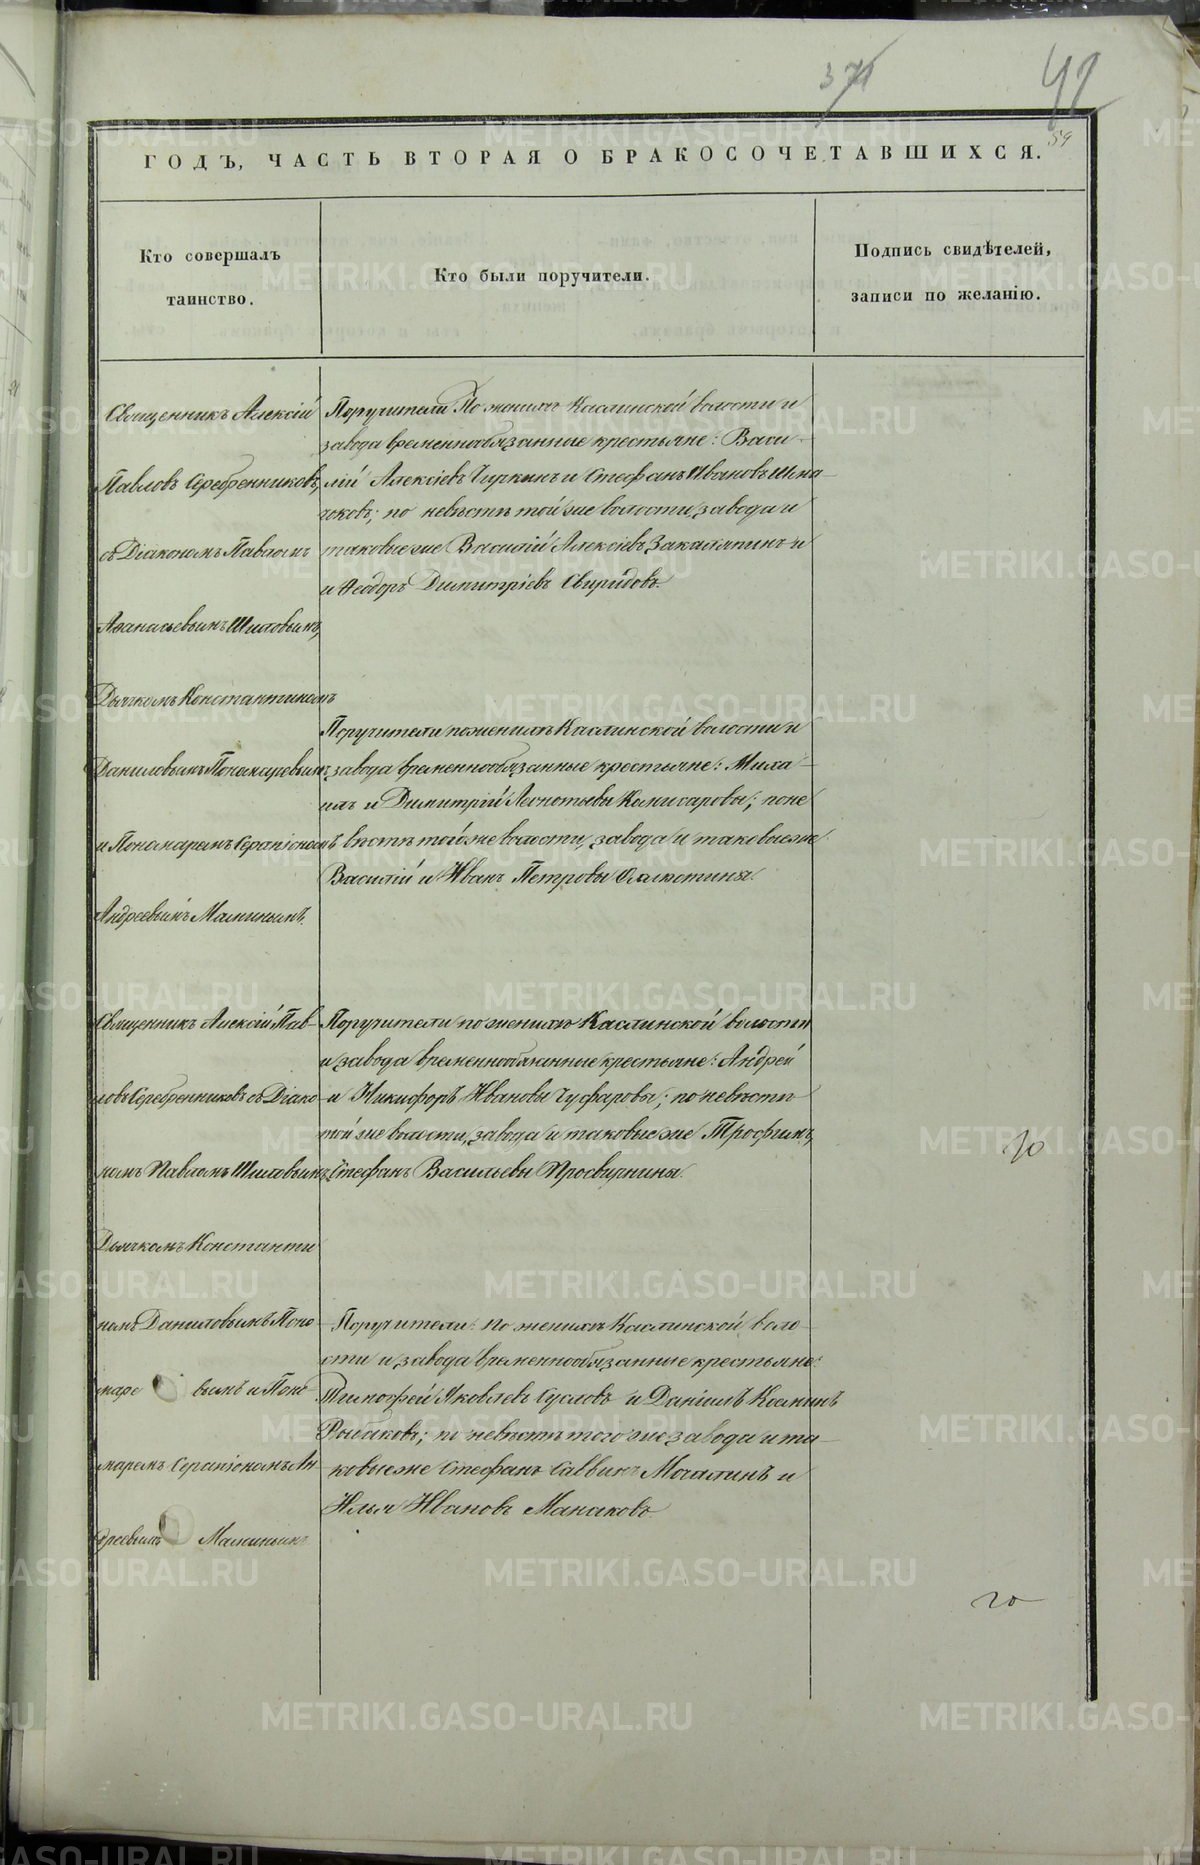 371
49
59
ГОДЪ, ЧАСТЬ ВТОРАЯ О БРАКОСОЧЕТАВШИХСЯ.
Кто совершалъ
таинство.
Кто были поручители.
Подпись свидѣтелей,
записи по желанію.
Священникъ Алексій
Павловъ Серебренниковъ,
съ Діакономъ Павломъ
Аѳанасьевымъ Шиловымъ,
Дьячкомъ Константиномъ
Даниловымъ Пономаревымъ
и Пономаремъ Серапіономъ
Андреевымъ Маминымъ.
Поручители По женихѣ Каслинской волости и
завода временнообязанные крестьяне: Васи-
лій Алексіевъ Чиркинъ и Стефанъ Ивановъ
по невѣстѣ той же волости, завода и
таковые же Василій Алексіевъ Закаляпинъ и
и Ѳеодоръ Димитріевъ Свиридовъ.
Поручители по женихѣ Каслинской волости и
завода временнообязанные крестьяне: Миха-
илъ и Димитрій Леонтьевы Комисаровы; по не
вѣстѣ той же волости, завода и таковые же
Василій и Иванъ Петровы Олалютины.
Священникъ Алексій Пав-
ловъ Серебренниковъ съ Діако-
номъ Павломъ Шиловымъ,
Дьячкомъ Константи
номъ Даниловымъ Поно-
маре вымъ и Поно-
маремъ Серапіономъ Ан
дреевымъ Маминымъ
Поручители по женихѣ Каслинской волости
и завода временнообязанные крестьяне: Андрей
и Никифоръ Ивановы Гусфаровы; по невѣстѣ
той же волости, завода и таковые же Трофимъ,
Стефанъ Васильевы Просвирнины.
Поручители: по женихѣ Каслинской воло-
сти и завода временнообязанные крестьяне:
Тимоѳей Яковлевъ Сусловъ и Даніилъ Козминъ
Рыбаковъ; по невѣстѣ того же завода и та-
ковые же Стефанъ Саввинъ Мочалинъ и
Илья Ивановъ Манаковъ.
METRIKI.GASO-URAL.RU